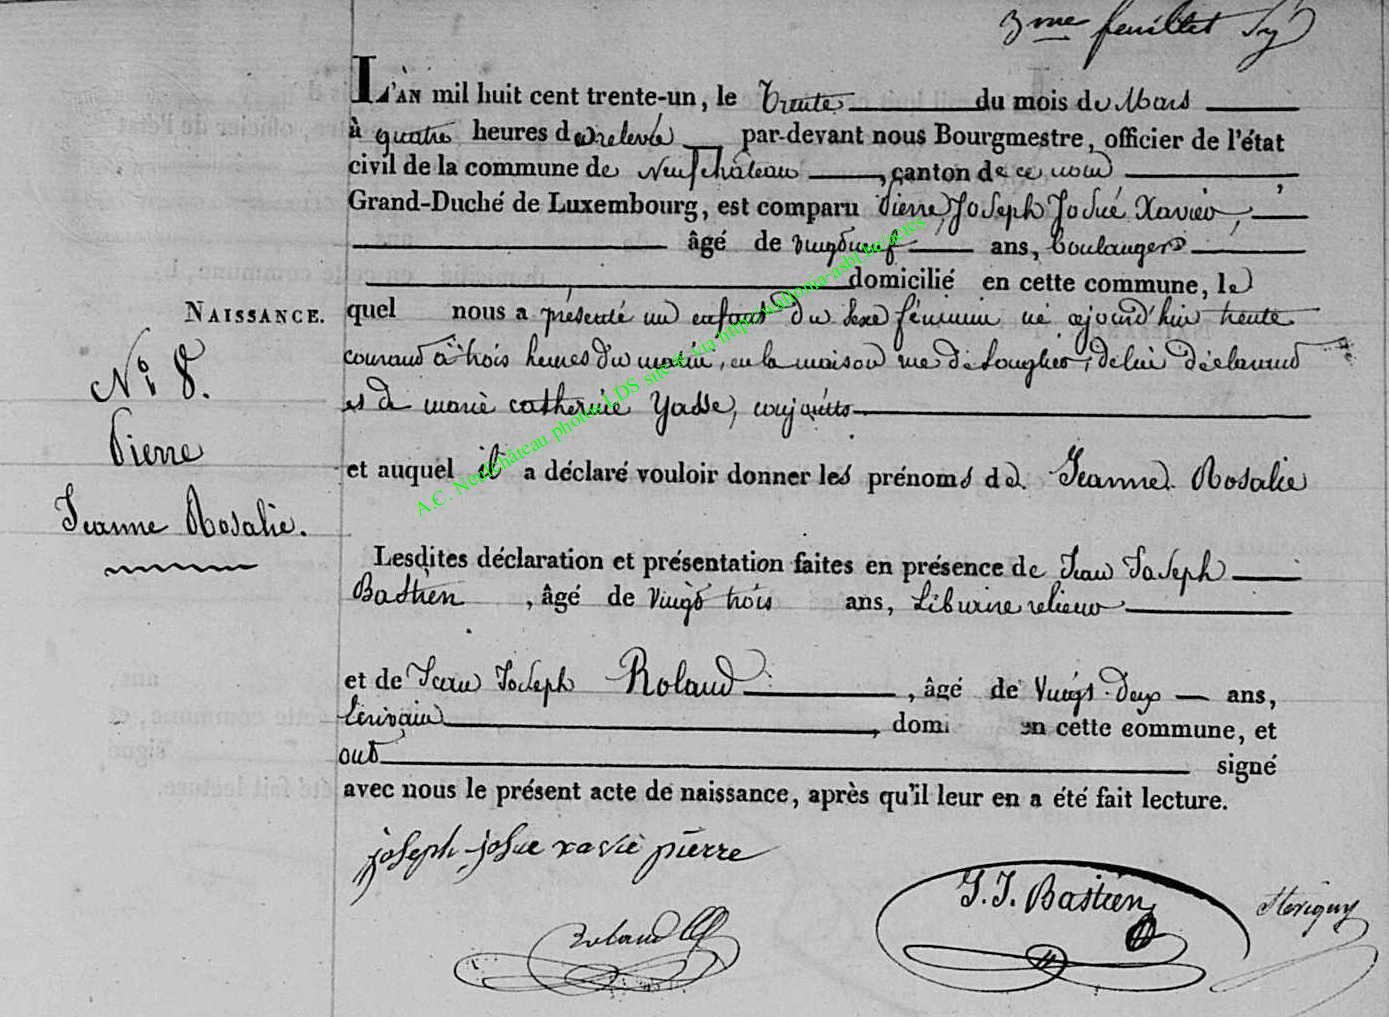 3me feuillet
L'AN mil huit cent trente-un, le trente du mois de Mars
à quatre heures de relevée par-devant nous Bourgmestre, officier de l'état
civil de la commune de Neufchâteau, canton de ce nom
Grand-Duché de Luxembourg, est comparu Pierre, Joseph Josué Xavier,
âgé de vingt neuf ans, boulanger
domicilié en cette commune, le
quel nous a présenté un enfant du sexe féminin né aujourd'hui trente
courant à trois heures du matin, en la maison rue de, de lui déclarant
et de marie catherine Yasse, conjoints
et auquel il a déclaré vouloir donner les prénoms de Jeanne Rosalie
Lesdites déclaration et présentation faites en présence de Jean Joseph
Bastien, âgé de Vingt trois ans, relieur
et de Jean Joseph Roland, âgé de Vingt deux ans,
Ecrivain, domi en cette commune, et
ont signé
avec nous le présent acte de naissance, après qu'il leur en a été fait lecture.
NAISSANCE.
No. 8.
Pierre
Jeanne Rosalie.
joseph josue xavie pierre
Roland
J. J. Bastien
A.C. Neufchâteau photos LDS site via http://wallonia-asbl.be actes